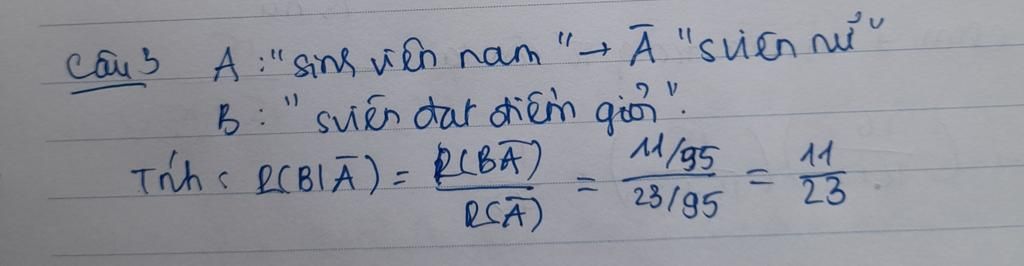 Câu 3 A : "sinh viên nam" → Ā "sviên nữ"
B : "sviên đạt điểm giỏi".
Tính : P(B|Ā) = P(BĀ)/P(Ā) = (11/95)/(23/95) = 11/23